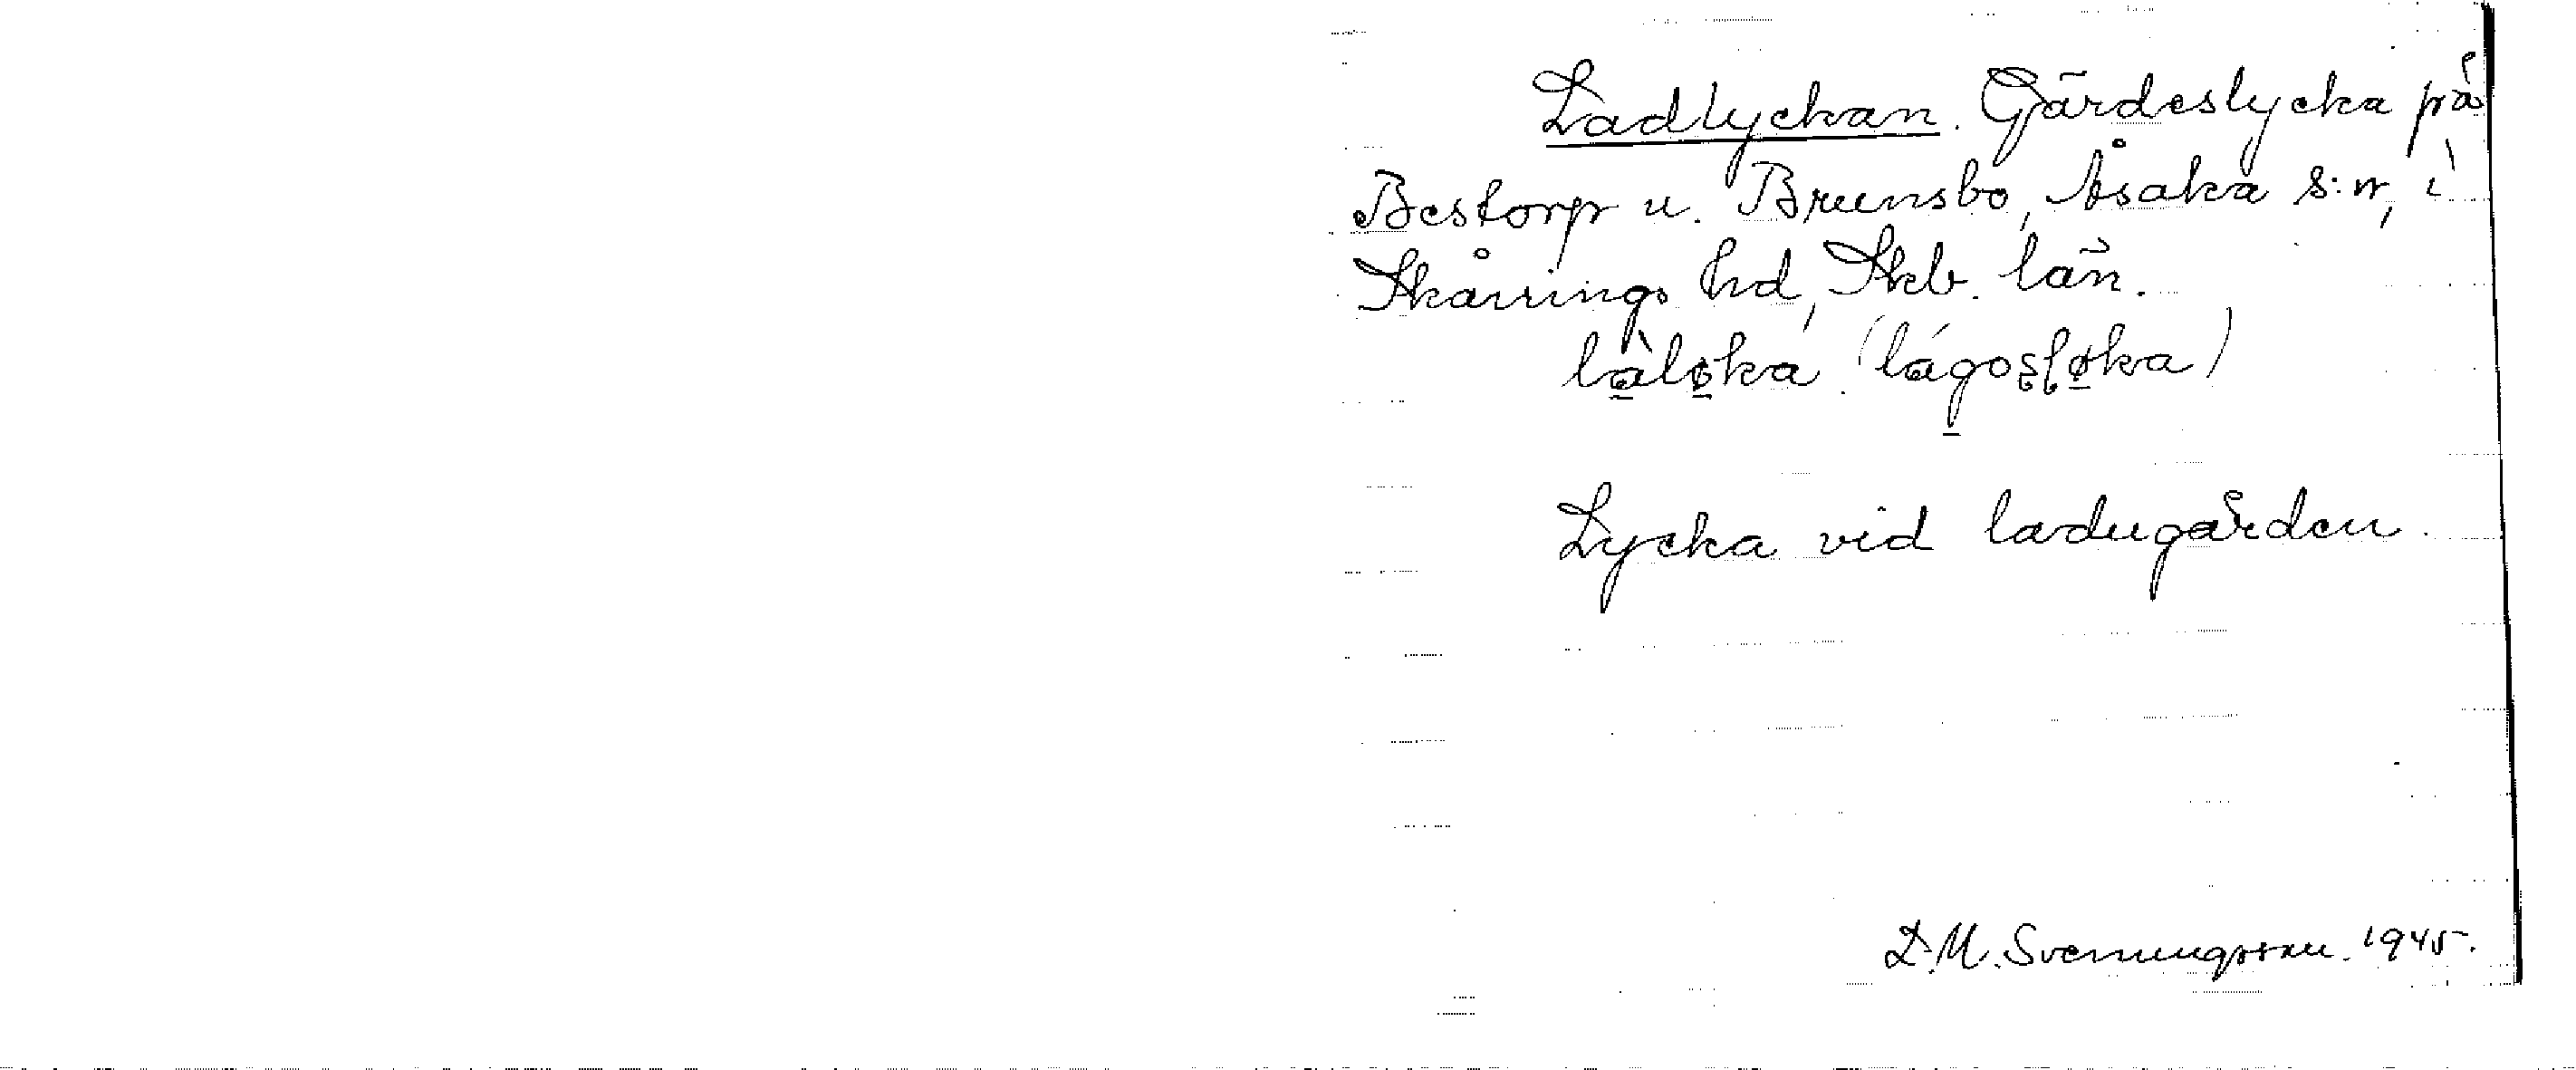 Ladlyckan. Gärdeslycka på
Bestorp u. Brunsbo, Åsaka s:n, i
Skånings hd, Skb. län.
là̱lø̱ka (lágo̱sļø̱ka)
Lycka vid ladugården.
D.M. Svenungsson. 1945.